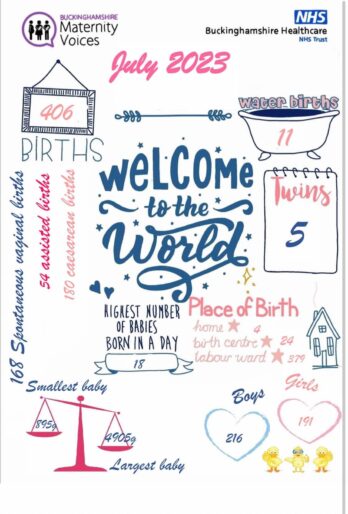 BUCKINGHAMSHIRE
Maternity
Voices
NHS
Buckinghamshire Healthcare
NHS Trust
July 2023
406
BIRTHS
water births
11
Twins
5
168 Spontaneous vaginal births
54 assisted births
180 caesarean births
WELCOME
to the
World
HIGHEST NUMBER
OF BABIES
BORN IN A DAY
18
Place of Birth
home 4
birth centre 24
labour ward 379
Smallest baby
895g
4905g
Largest baby
Boys
216
Girls
191